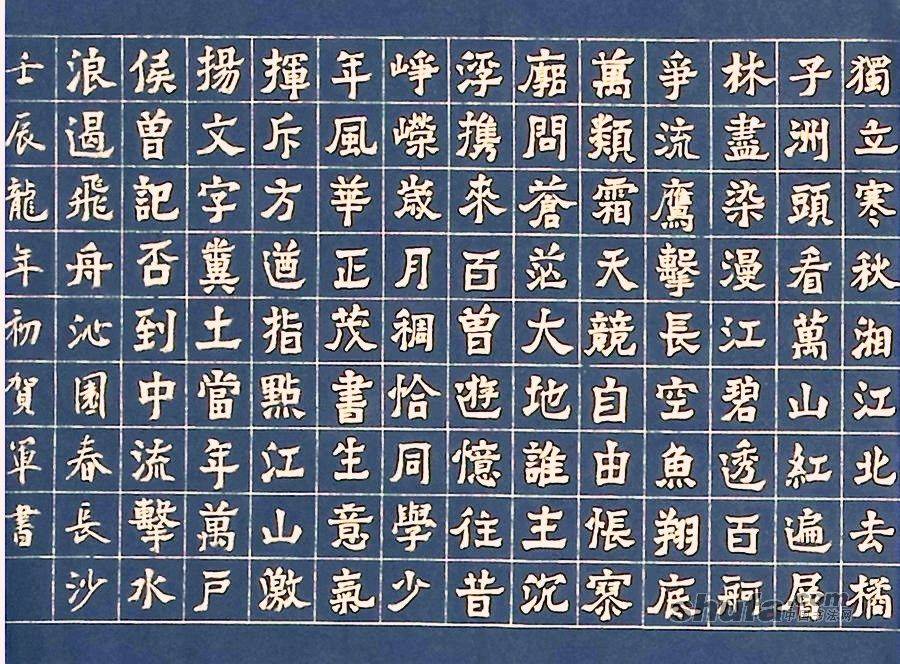 獨立寒秋湘江北去橘
子洲頭看萬山紅遍層
林盡染漫江碧透百舸
爭流鷹擊長空魚翔底
萬類霜天競自由悵寥
廓問蒼茫大地誰主沉
浮携來百曾遊憶往昔
崢嶸嵗月稠恰同學少
年風華正茂書生意氣
揮斥方遒指點江山激
揚文字糞土當年萬戶
侯曾記否到中流擊水
浪遏飛舟沁園春長沙
壬辰龍年初賀軍書
shufa.com
中国书法网